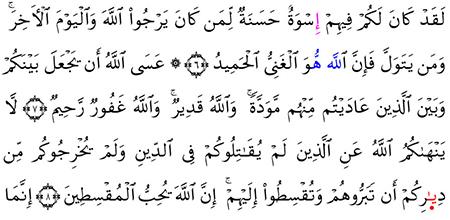 لَقَدْ كَانَ لَكُمْ فِيهِمْ إِسْوَةٌ حَسَنَةٌ لِّمَن كَانَ يَرْجُواْ اللَّهَ وَالْيَوْمَ ٱلْأٓخِرَۚ
وَمَن يَتَوَلَّ فَإِنَّ اللَّهَ هُوَ الْغَنِيُّ الْحَمِيدُ ﴿٦﴾ ۞ عَسَى اللَّهُ أَن يَجْعَلَ بَيْنَكُمْ
وَبَيْنَ الَّذِينَ عَادَيْتُم مِّنْهُم مَّوَدَّةًۚ وَاللَّهُ قَدِيرٌۚ وَاللَّهُ غَفُورٌ رَّحِيمٌ ﴿٧﴾ لَّا
يَنْهَىٰكُمُ اللَّهُ عَنِ الَّذِينَ لَمْ يُقَٰتِلُوكُمْ فِي الدِّينِ وَلَمْ يُخْرِجُوكُم مِّن
دِيَٰرِكُمْ أَن تَبَرُّوهُمْ وَتُقْسِطُواْ إِلَيْهِمْۚ إِنَّ اللَّهَ يُحِبُّ الْمُقْسِطِينَ ﴿٨﴾ إِنَّمَا